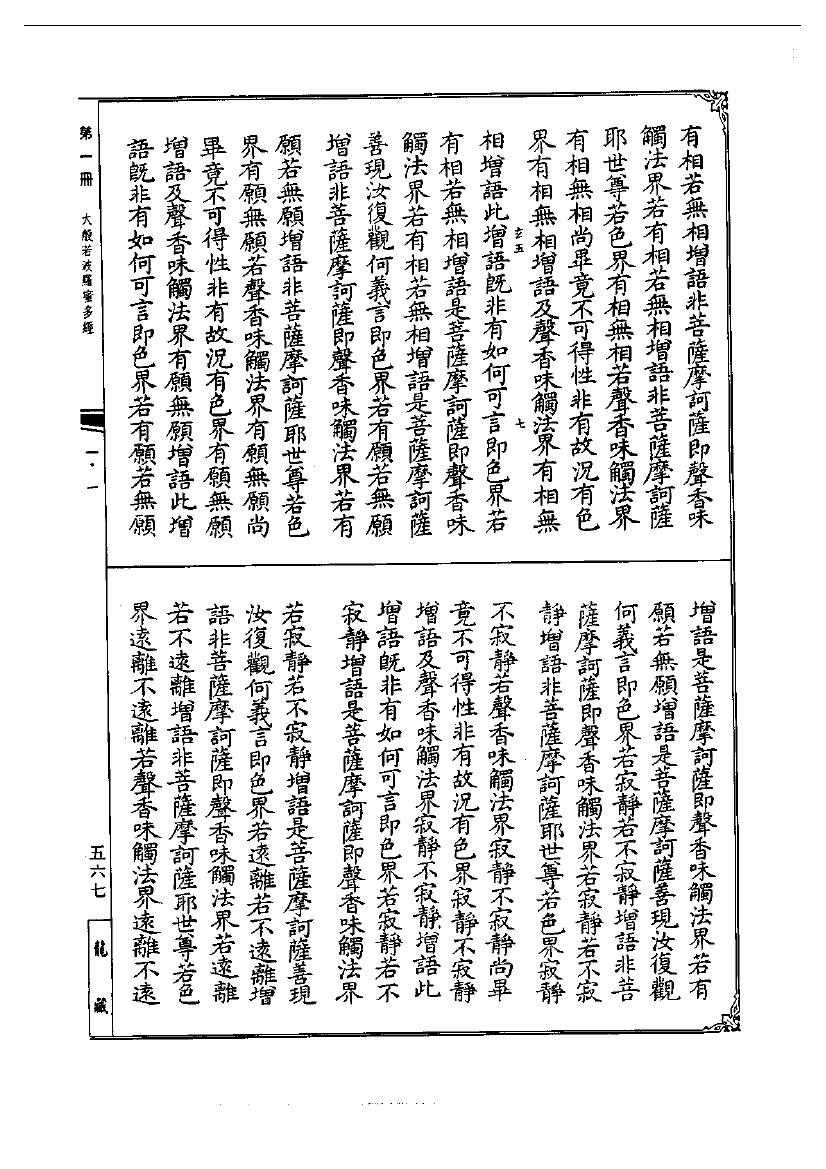 有相若無相增語非菩薩摩訶薩即聲香味
觸法界若有相若無相增語非菩薩摩訶薩
耶世尊若色界有相無相若聲香味觸法界
有相無相尚畢竟不可得性非有故況有色
界有相無相增語及聲香味觸法界有相無
相增語此增語既非有如何可言即色界若
有相若無相增語是菩薩摩訶薩即聲香味
觸法界若有相若無相增語是菩薩摩訶薩
善現汝復觀何義言即色界若有願若無願
增語非菩薩摩訶薩即聲香味觸法界若有
願若無願增語非菩薩摩訶薩耶世尊若色
界有願無願若聲香味觸法界有願無願尚
畢竟不可得性非有故況有色界有願無願
增語及聲香味觸法界有願無願增語此增
語既非有如何可言即色界若有願若無願
增語是菩薩摩訶薩即聲香味觸法界若有
願若無願增語是菩薩摩訶薩善現汝復觀
何義言即色界若寂靜若不寂靜增語非菩
薩摩訶薩即聲香味觸法界若寂靜若不寂
靜增語非菩薩摩訶薩耶世尊若色界寂靜
不寂靜若聲香味觸法界寂靜不寂靜尚畢
竟不可得性非有故況有色界寂靜不寂靜
增語及聲香味觸法界寂靜不寂靜增語此
增語既非有如何可言即色界若寂靜若不
寂靜增語是菩薩摩訶薩即聲香味觸法界
若寂靜若不寂靜增語是菩薩摩訶薩善現
汝復觀何義言即色界若遠離若不遠離增
語非菩薩摩訶薩即聲香味觸法界若遠離
若不遠離增語非菩薩摩訶薩耶世尊若色
界遠離不遠離若聲香味觸法界遠離不遠
第一冊 大般若波羅蜜多經
一·一
五六七
龍藏